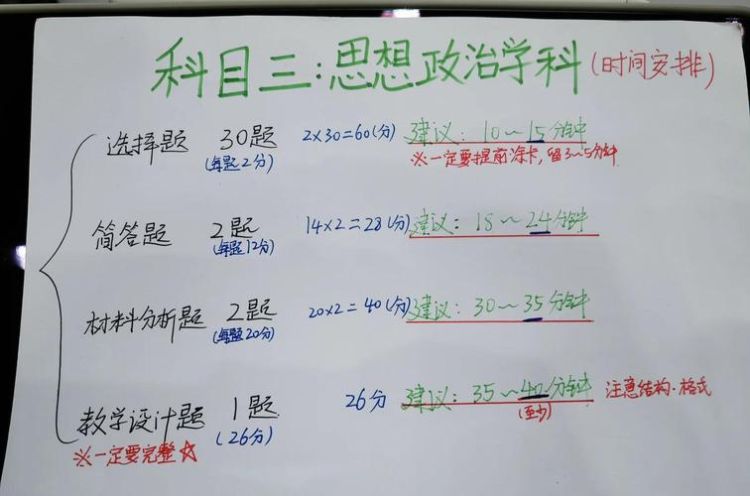 科目三:思想政治学科(时间安排)
选择题 30题 2×30=60(分) 建议: 10~15分钟
(每题2分) ※一定要提前涂卡,留3~5分钟
简答题 2题 14×2=28(分) 建议: 18~24分钟
(每题12分)
材料分析题 2题 20×2=40(分) 建议: 30~35分钟
(每题20分)
教学设计题 1题 26分 建议: 35~40分钟 注意结构·格式
(26分) (至少)
※一定要完整☆